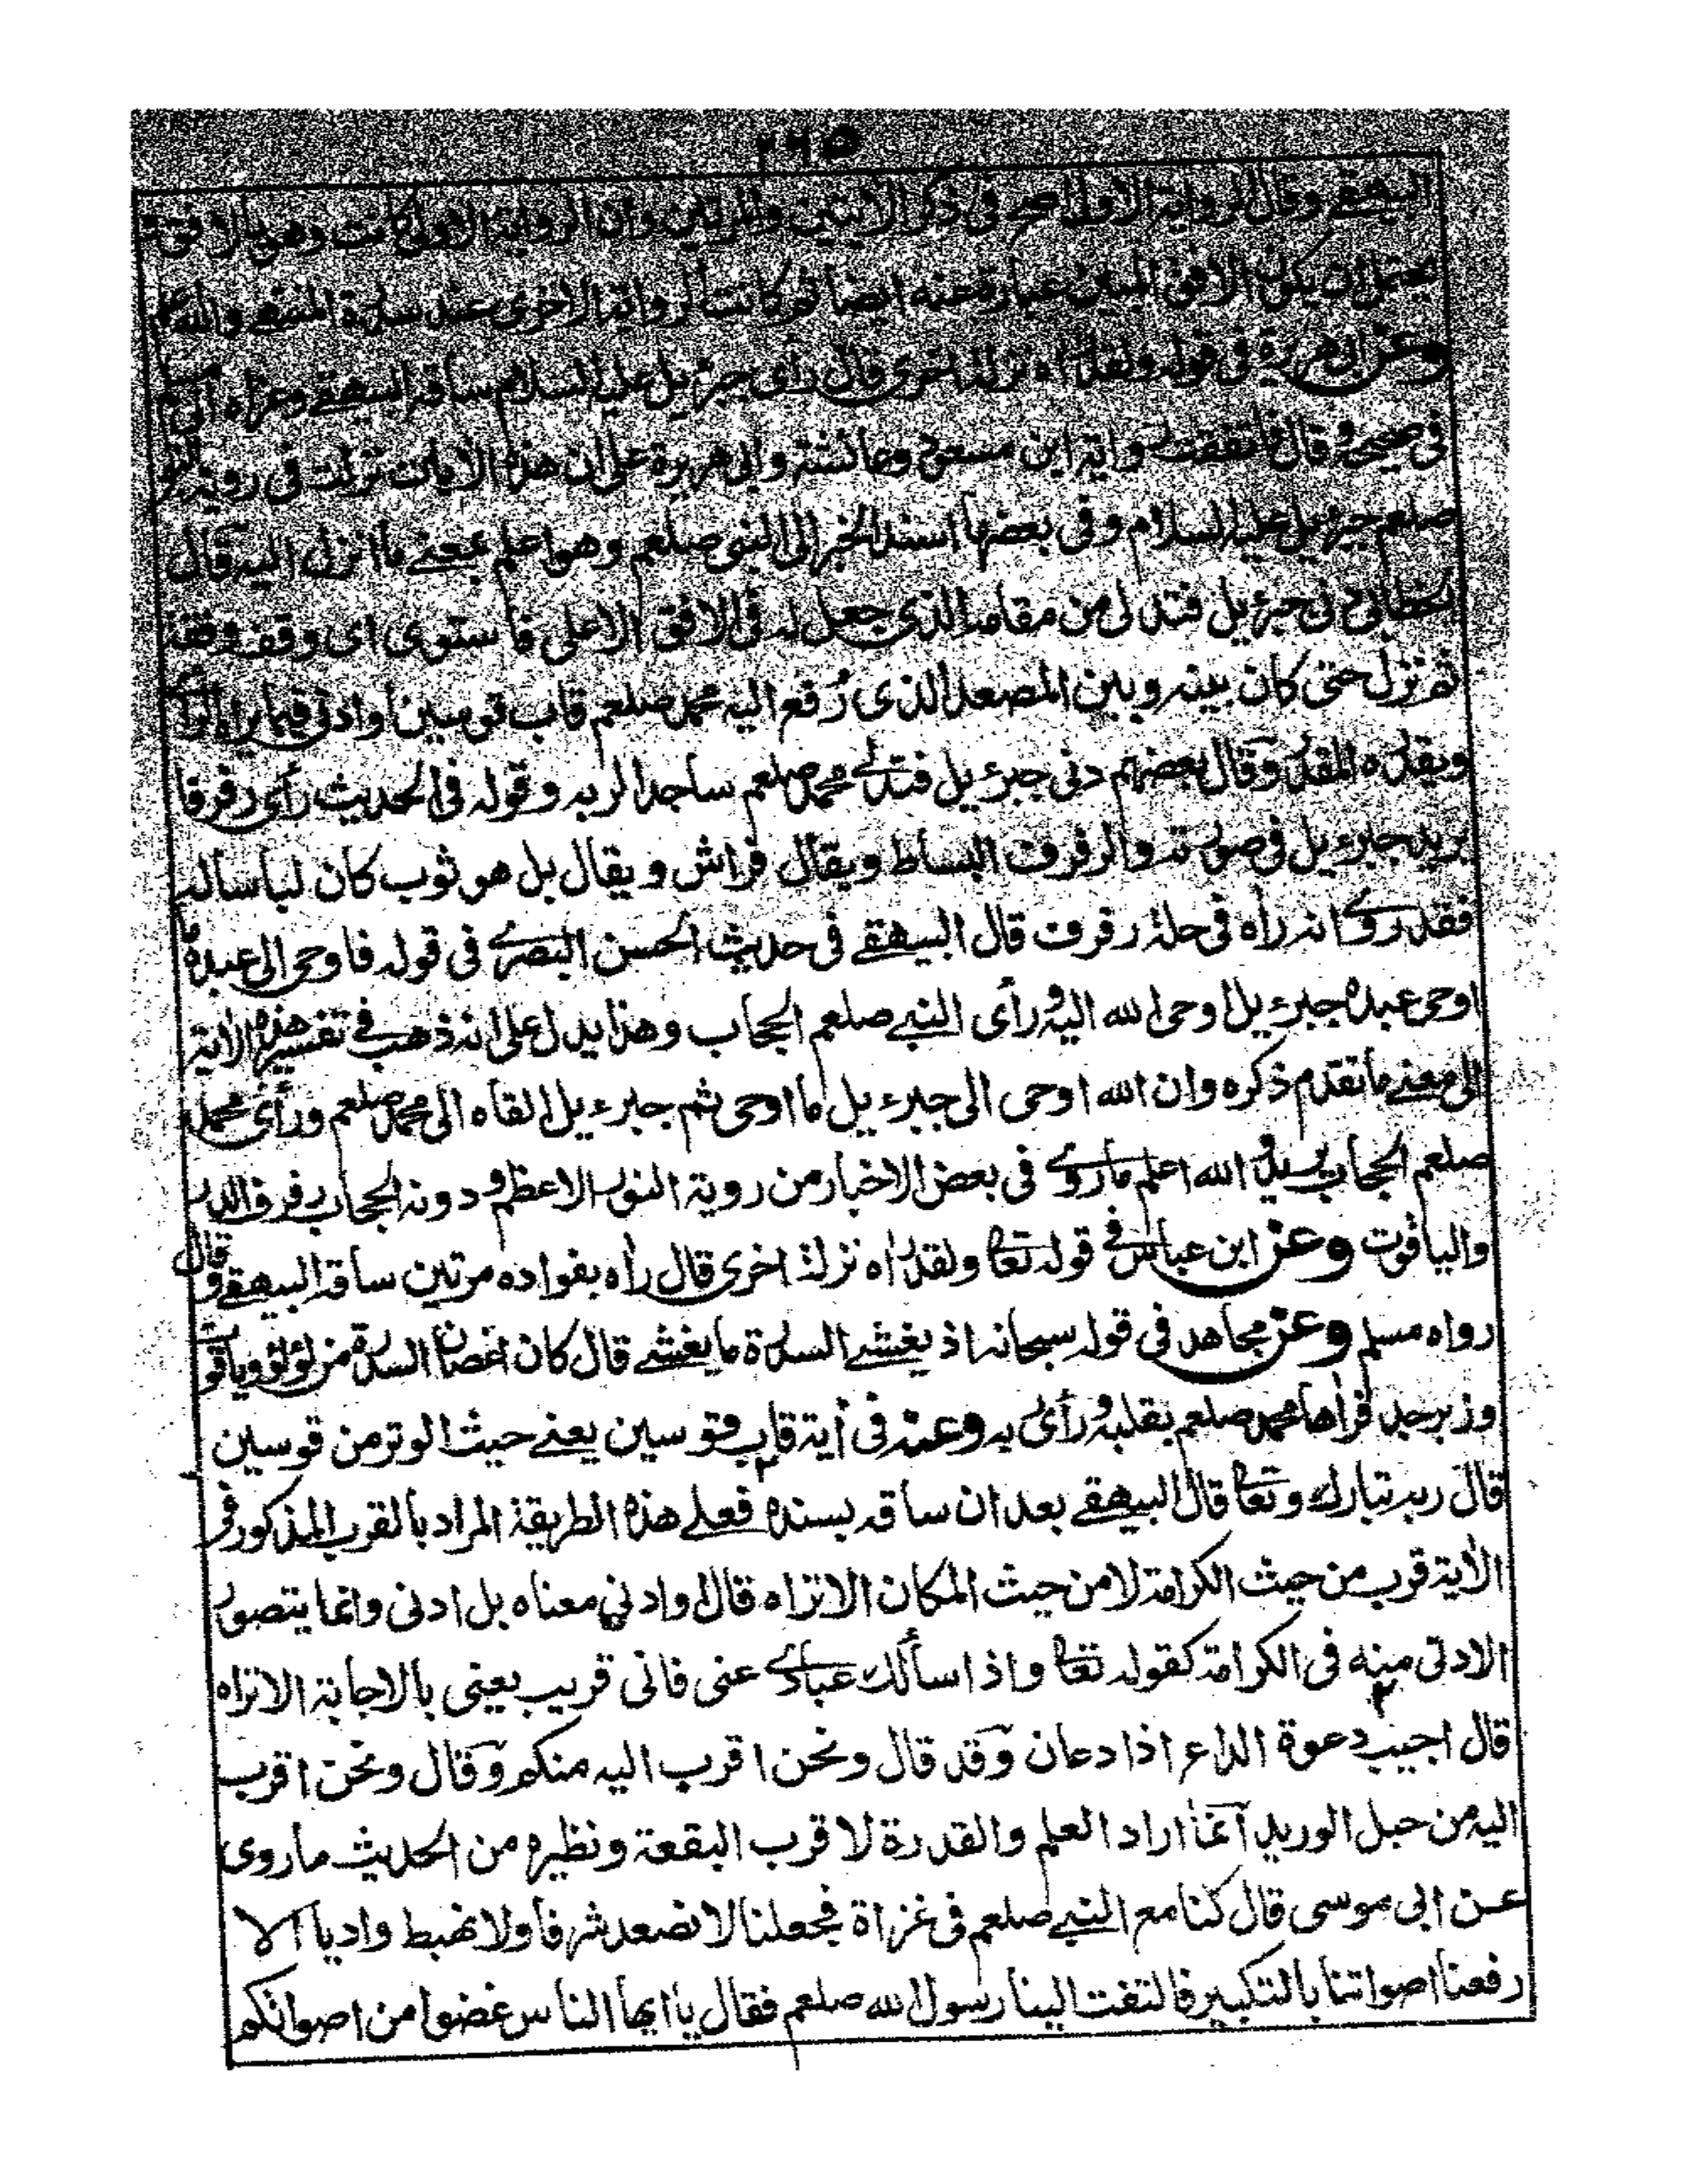 ٢٦٥
البيهقے وقال الرواية الاولى اصح فى ذكر الايتين والمرتين وان الرواية الاولى كانت وهو بالافق
يحتمل ان يكون الافق المبين عبارة عنه ايضا ثم كانت الرواية الاخرى عند سدرة المنتهى والله
وعن ابى هريرة فى قوله ولقد راه نزلة اخرى قال رأى جبرئيل عليه السلام ساقه البيهقے وعزاه الى
فى صحيحه وقال فاتفقت رواية ابن مسعود وعائشة وابى هريرة على ان هذه الايات نزلت فى روية
صلعم جبرئيل عليه السلام وفى بعضها اسند الخبر الى النبى صلعم وهو اعلم بمعنے ما انزل اليه قال
دنى جبرئيل فتدلى من مقامه الذى جعل له فى الافق الاعلى فاستوى اى وقف وقفة
ثم نزل حتى كان بينه وبين المصعد الذى رفع اليه محمد صلعم قاب قوسين او ادنى فيما يراه
ويقدره المقدر وقال بعضهم دنى جبرئيل فتدلے محمد صلعم ساجدا لربه وقوله فى الحديث رأى رفرفا
يريد جبرءيل فى صورته والرفرف البساط ويقال فراش ويقال بل هو ثوب كان لباسا له
فقد روے انه رأه فى حلة رفرف قال البيهقے فى حديث الحسن البصرے فى قوله فاوحى الى عبده ما
اوحى عبده جبرءيل اوحى الله اليه ورأى النبے صلعم الحجاب وهذا يدل على انه ذهب فے تفسير هذه الاية
الى معنے ما تقدم ذكره وان الله اوحى الى جبرءيل ما اوحى ثم جبرءيل القاه الى محمد صلعم ورأى محمد
صلعم الحجاب يريد والله اعلم ما روے فى بعض الاخبار من روية النور الاعظم ودونه الحجاب رفرف الدر
والياقوت وعن ابن عباس فے قوله تعا ولقد راه نزلة اخرى قال رأه بفواده مرتين ساقه البيهقے وقال
رواه مسلم وعن مجاهد فى قوله سبحانه اذ يغشے السدرة ما يغشے قال كان اغصان السدرة من لؤلؤ وياقوت
وزبرجد فرأها محمد صلعم بقلبه ورأى ربه وعنه فى أية قاب قوسين يعنے حيث الوتر من قوسين
قال ربه تبارك وتعا قال البيهقے بعد ان ساقه بسنده فعلے هذه الطريقة المراد بالقرب المذكور فى
الاية قرب من حيث الكرامة لا من حيث المكان الا تراه قال او ادنى معناه بل ادنى وانما يتصور
الادنى منه فى الكرامة كقوله تعا واذا سألك عبادے عنى فانى قريب يعنى بالاجابة الا تراه
قال اجيب دعوة الداع اذا دعان وقد قال ونحن اقرب اليه منكم وقال ونحن اقرب
اليه من حبل الوريد انما اراد العلم والقدرة لا قرب البقعة ونظيره من الحديث ما روى
عن ابى موسى قال كنا مع النبے صلعم فى غزاة فجعلنا لا نصعد شرفا ولا نهبط واديا الا
رفعنا اصواتنا بالتكبير فالتفت الينا رسول الله صلعم فقال يا ايها الناس غضوا من اصواتكم